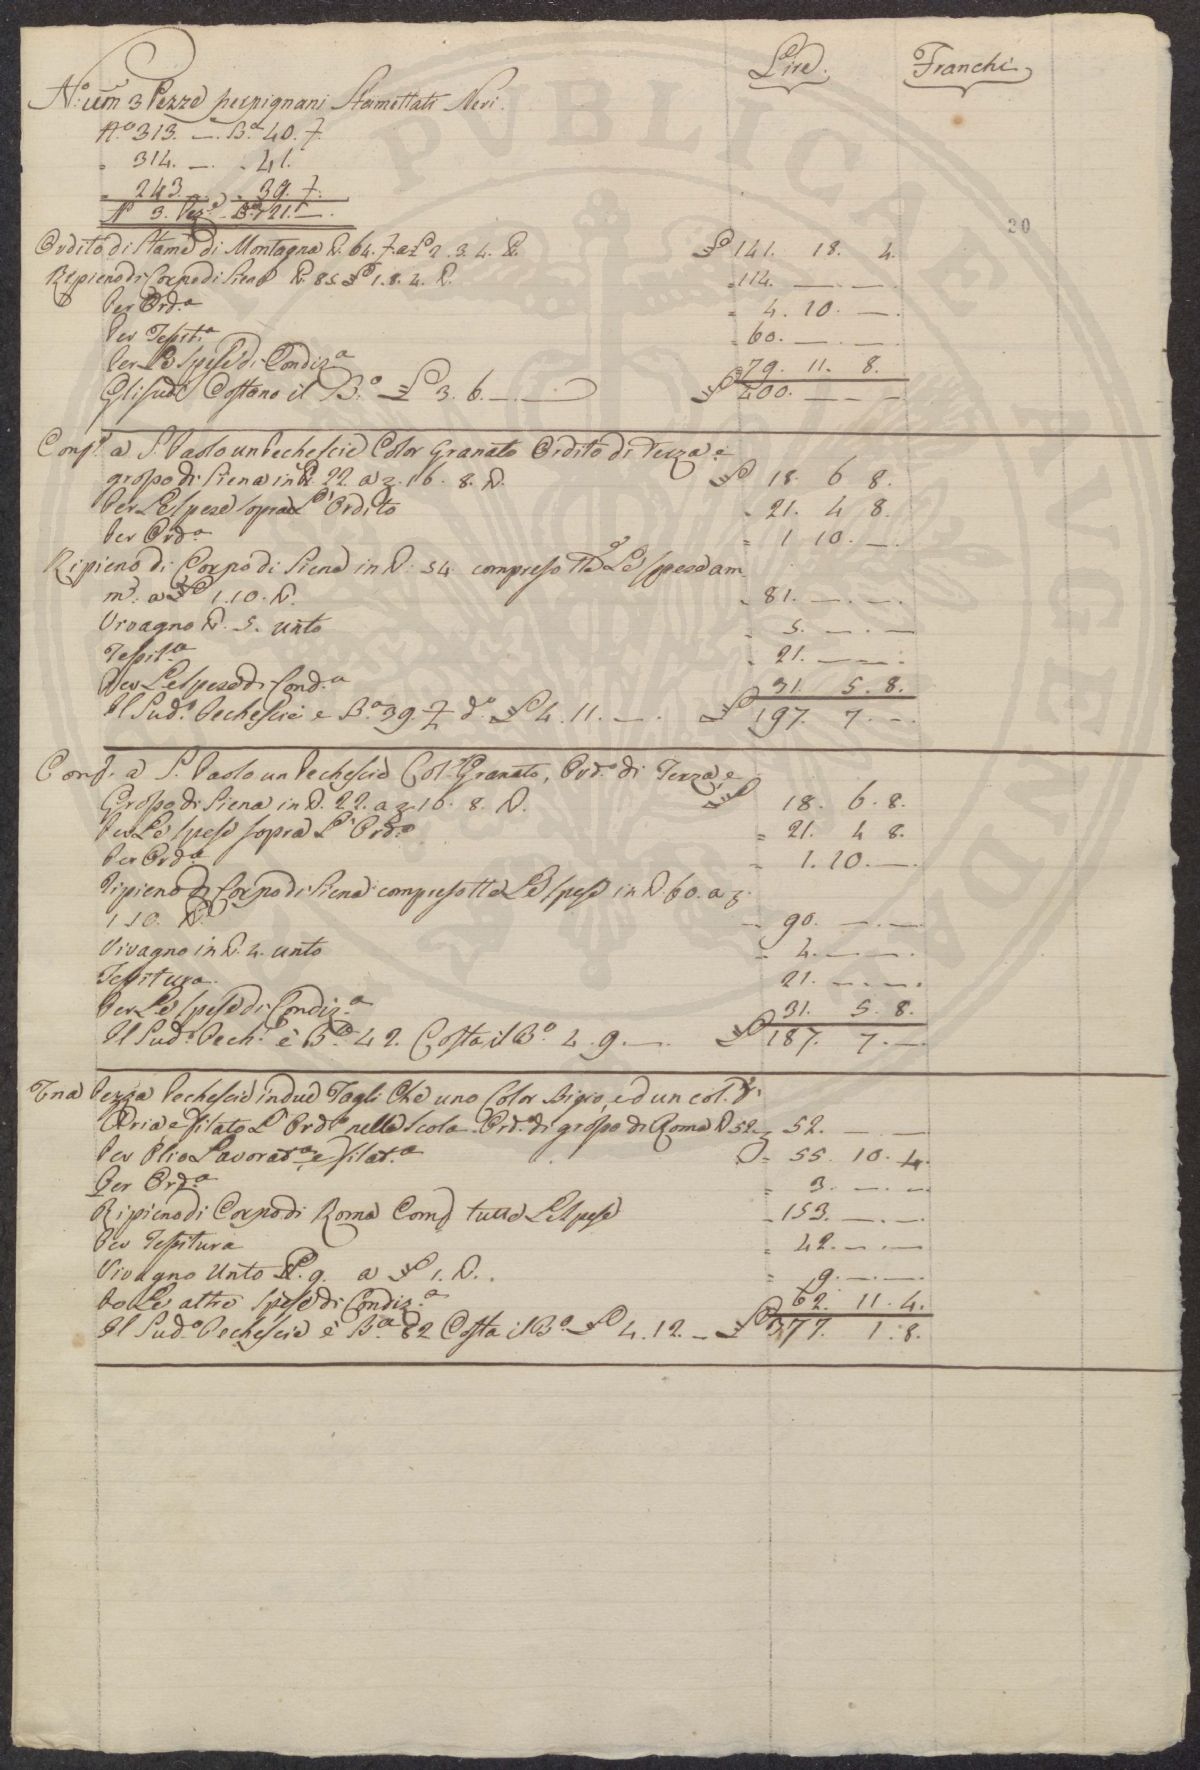 Lire. Franchi
N.º um 3 Pezze perpignani Stamettati Neri.
N.º 313. —. B.ª 40. 7.
= 314. —. - 41.
= 243. - 39. 7.
N 3. Pez.e B.ª 121. —.
Ordito di Stame di Montagna £. 64. 7. a £ 2. 3. 4. £. £ 141. 18. 4.
Ripieno di Corpo di Siena £. 85 £ 1. 8. 4. £. = 114. — —.
Per Ord.ª = 4. 10. —.
Per Tessit.ª = 60. — —.
Per Le Spese di Condiz.ª 79. 11. 8.
Gli sud.i Costano il B.º £ 3. 6. — £ 400. — — —
Cons.º a S. Paolo un Pechescie Color Granato Ordito di Terza, e
grosso di Siena in £ 22 a z. 16. 8. £. £ 18. 6 8.
Per Le Spese sopra L' Ordito - 21. 4 8.
Per Ord.ª = 1 10. —.
Ripieno di Corpo di Siena in £. 54 compreso tte Le spese am
m.º a £ 1. 10. £. - 81. — —.
Vivagno £. 5. unto - 5. — —
Tessit.ª - 21. — —.
Per Le Spese di Cond.ª 31. 5. 8.
Il Sud.º Pechescie è B.ª 39. 7 d.º £ 4. 11. —. £ 197. 7. —.
Cons. a S. Paolo un Pechescie Col.r Granato, Ord.º di Terza, e
Grosso di Siena in £. 22. a z 16. 8. £. £ 18. 6. 8.
Per Le Spese sopra L' Ord.º = 21. 4 8.
Per Ord.ª = 1. 10. —.
Ripieno di Corpo di Siena compreso tte Le Spese in £ 60. a z.
1 10. £. — 90. — —.
Vivagno in £. 4. unto = 4. — —.
Tessitura 21. — —.
Per Le Spese di Condiz.ª 31. 5. 8.
Il Sud.º Pech.e è B.ª 42. Costa il B.º 4. 9. —. £ 187. 7. —.
Una Pezza Pechescie in due Tagli Che uno Color Bigio, ed un col. d'
Aria e filato L' Ord.º nella Scola Ord.º di grosso di Roma £ 52. z 52. — —
Per Olio Lavorat.ª e filat.ª = 55 10. 4.
Per Ord.ª = 3. — —
Ripieno di Corpo di Roma Comp. tutte Le Spese - 153. — —.
Per Tessitura = 42. — —
Vivagno Unto £. 9. a £ 1. £. = 9. — —.
Le altre Spese di Condiz.ª 62. 11. 4.
Il Sud.º Pechescie è B.ª 82 Costa il B.º £ 4. 12. — £ 377. 1. 8.